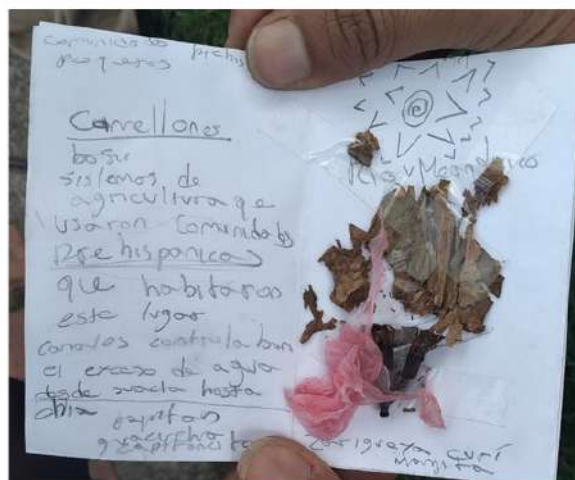 comunidades
pequeros
Camellones
bosu
sistemas de
agricultura que
usaron Comunidades
Prehispanicas
que habitaron
este lugar
canales controlaban
el exceso de agua
desde suacla hasta
chia
capitan
guacicha
y capitancito
Zarigueya curí